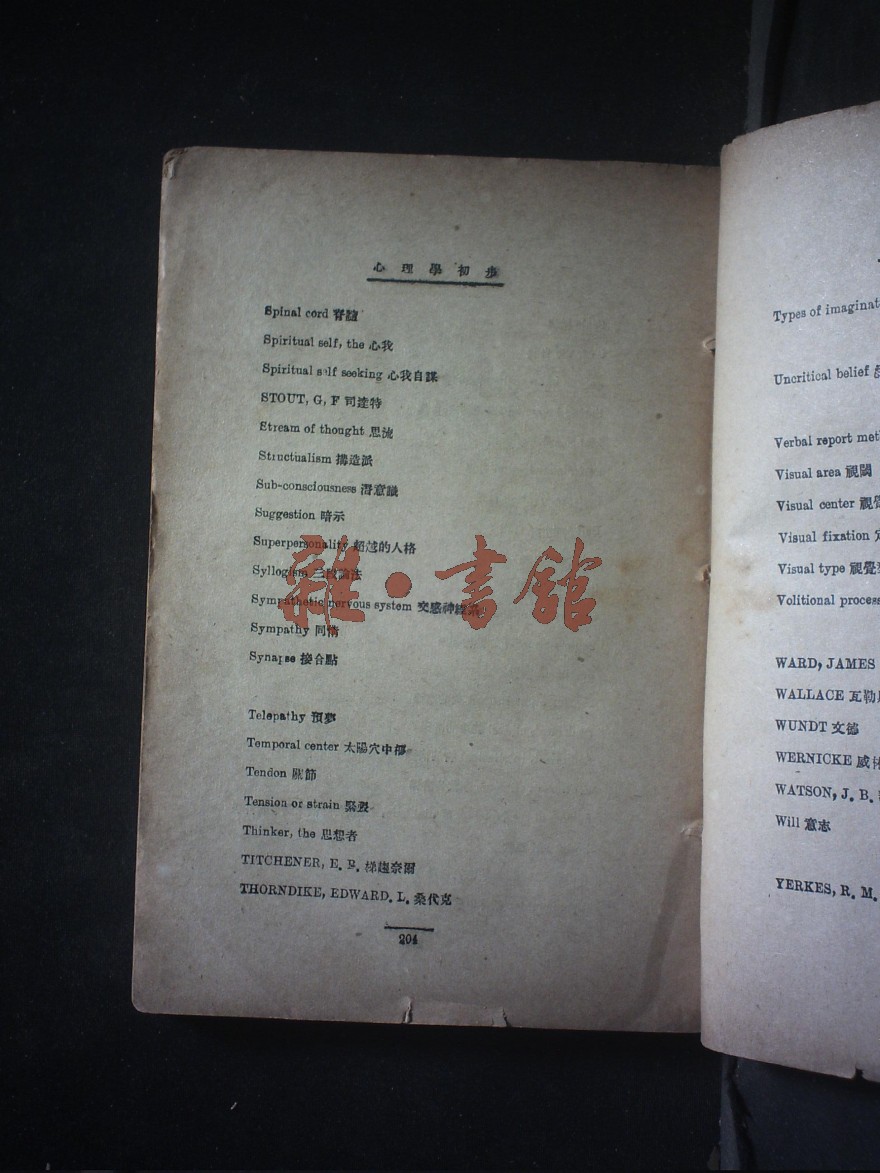 心理學初步
Spinal cord 脊髓
Spiritual self, the 心我
Spiritual self seeking 心我自謀
STOUT, G, F 司達特
Stream of thought 思流
Structualism 搆造派
Sub-consciousness 潛意識
Suggestion 暗示
Superpersonality 超越的人格
Syllogism 三段論法
Sympathetic nervous system 交感神經系
Sympathy 同情
Synapse 接合點
Telepathy 預夢
Temporal center 太陽穴中樞
Tendon 腱節
Tension or strain 緊張
Thinker, the 思想者
TITCHENER, E. B. 梯趨奈爾
THORNDIKE, EDWARD. L. 桑代克
204
雜·書館
Types of imaginat
Uncritical belief
Verbal report met
Visual area 視閾
Visual center 視覺
Visual fixation
Visual type 視覺
Volitional process
WARD, JAMES
WALLACE 瓦勒
WUNDT 文德
WERNICKE 威
WATSON, J. B.
Will 意志
YERKES, R. M.